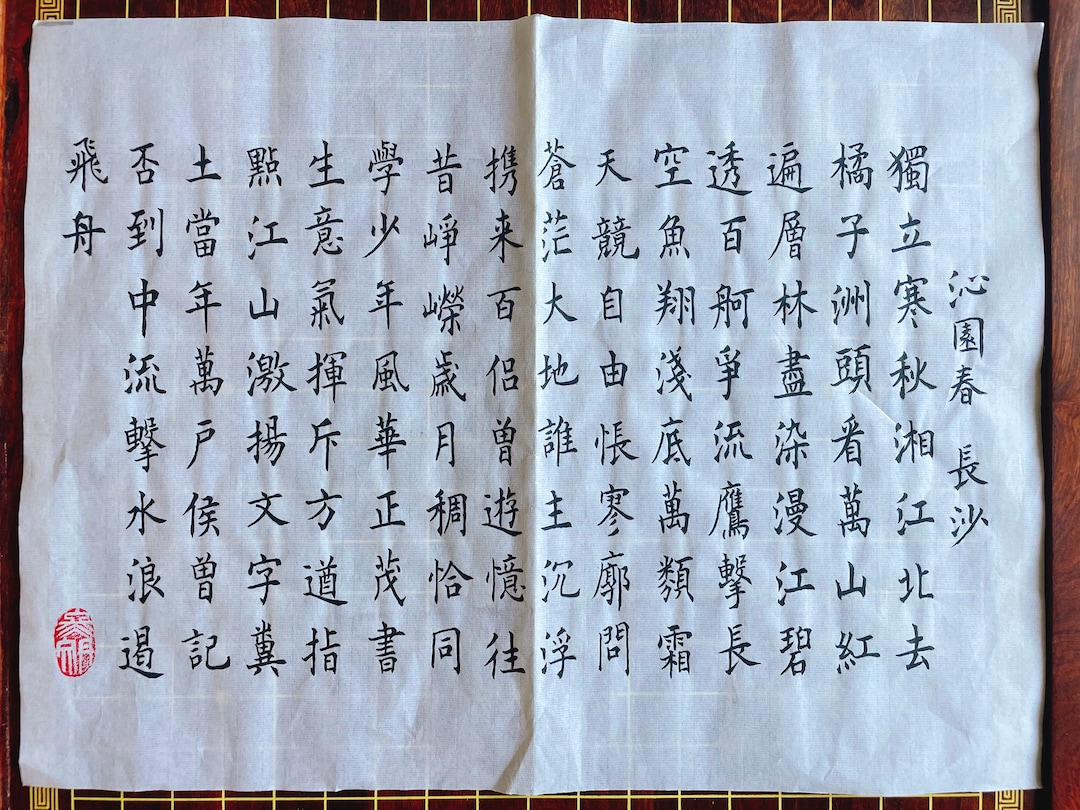 沁園春 長沙
獨立寒秋湘江北去
橘子洲頭看萬山紅
遍層林盡染漫江碧
透百舸爭流鷹擊長
空魚翔淺底萬類霜
天競自由悵寥廓問
蒼茫大地誰主沉浮
携来百侣曾遊憶往
昔崢嶸歲月稠恰同
學少年風華正茂書
生意氣揮斥方遒指
點江山激揚文字糞
土當年萬戶侯曾記
否到中流擊水浪遏
飛舟